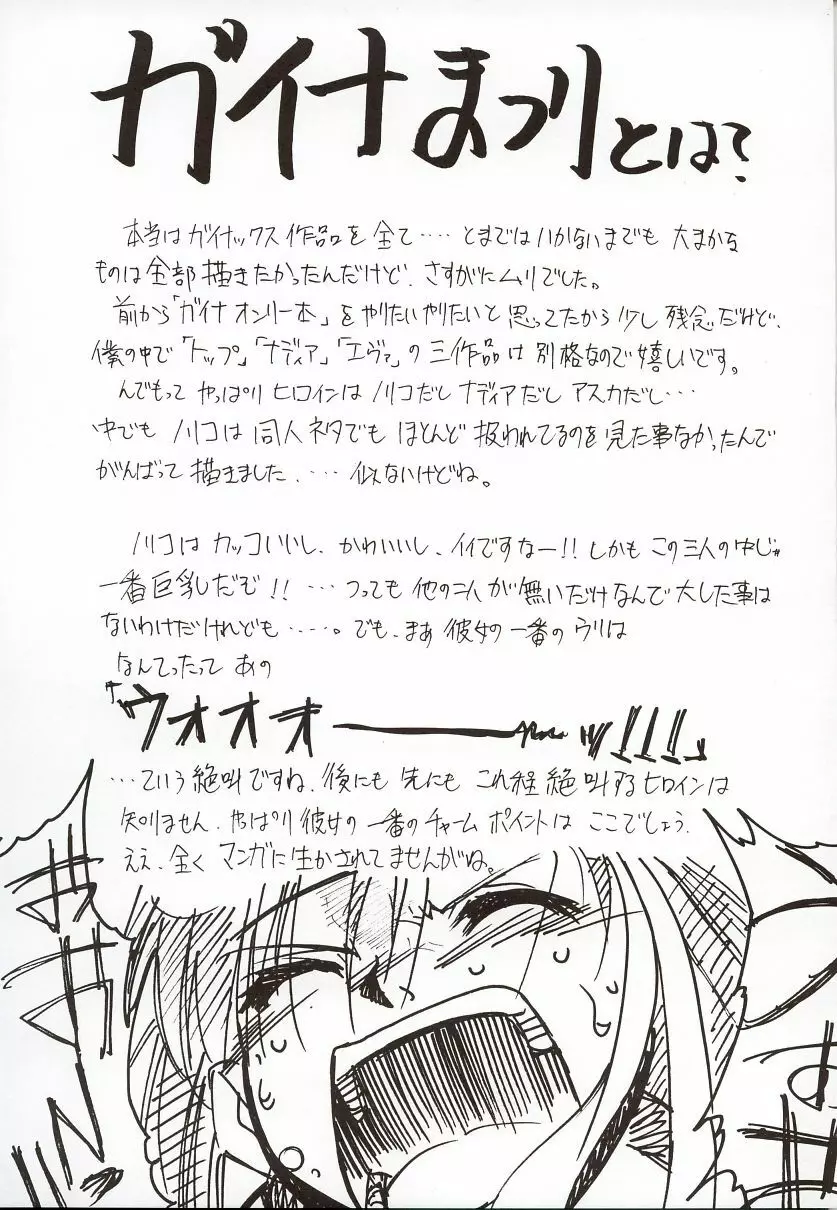 ガイナまつりとは?
本当はガイナックス作品を全て‥‥とまではいかないまでも大まかな
ものは全部描きたかったんだけど、さすがにムリでした。
前から「ガイナオンリー本」をやりたいやりたいと思ってたから少し残念だけど、
僕の中で「トップ」「ナディア」「エヴァ」の三作品は別格なので嬉しいです。
んでもって やっぱり ヒロインは ノリコだし ナディアだし アスカだし…
中でも ノリコは 同人ネタでも ほとんど 扱われてるのを 見た事なかったんで
がんばって 描きました、‥‥ 似てないけどね。
ノリコは カッコいいし、かわいいし、イイですなー!! しかも この三人の中じゃ
一番巨乳だぞ!! ‥‥つっても 他の二人が無いだけなんで大した事は
ないわけだけれども‥‥‥。でも、まぁ 彼女の一番のウリは
なんてったって あの
「ウォオオーーーッ!!!」
…ていう 絶叫ですね、後にも 先にも これ程 絶叫する ヒロインは
知りません、やっぱり 彼女の 一番のチャーム ポイントは ここでしょう、
ええ、全く マンガに生かされてませんがね。